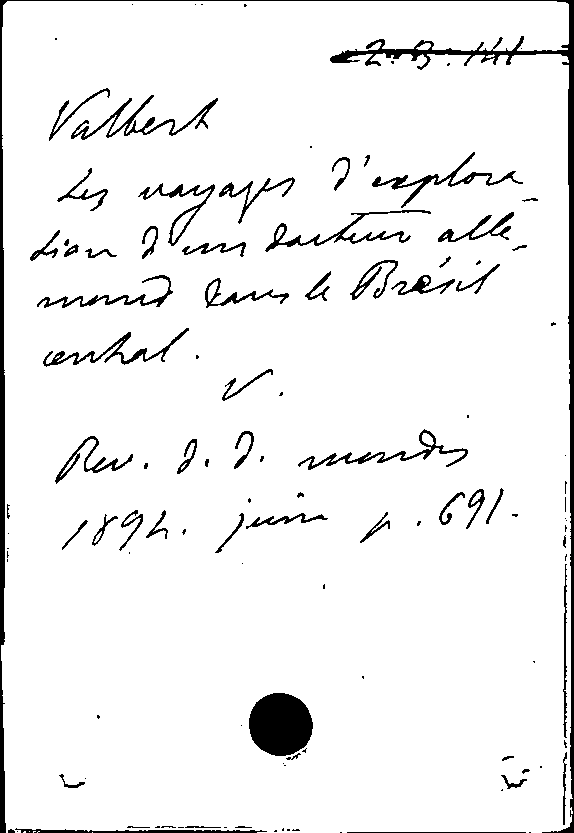 2.3.141
Valbert
Les voyages d'explora-
tion d'un docteur alle-
mand dans le Brésil
central.
V.
Rev. d. d. mondes
1894. juin p. 691.